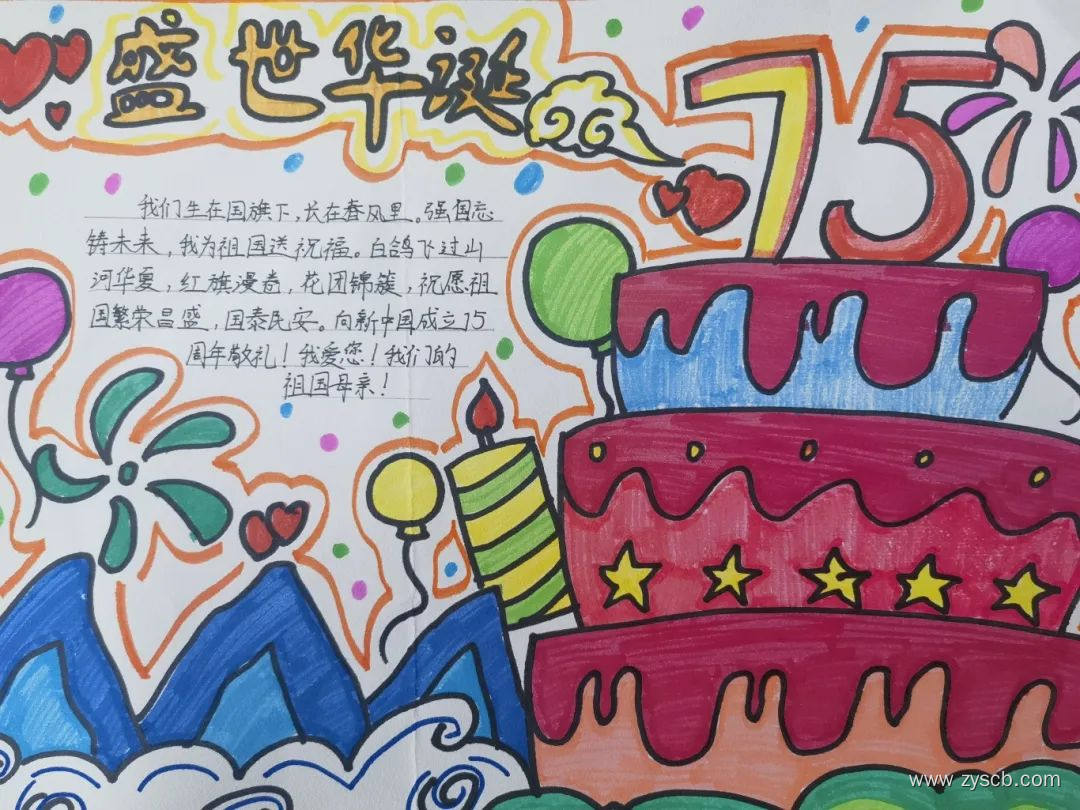 盛世华诞
75
我们生在国旗下，长在春风里。强国志
铸未来，我为祖国送祝福。白鸽飞过山
河华夏，红旗漫卷，花团锦簇，祝愿祖
国繁荣昌盛，国泰民安。向新中国成立75
周年敬礼！我爱您！我们的
祖国母亲！
www.zyscb.com